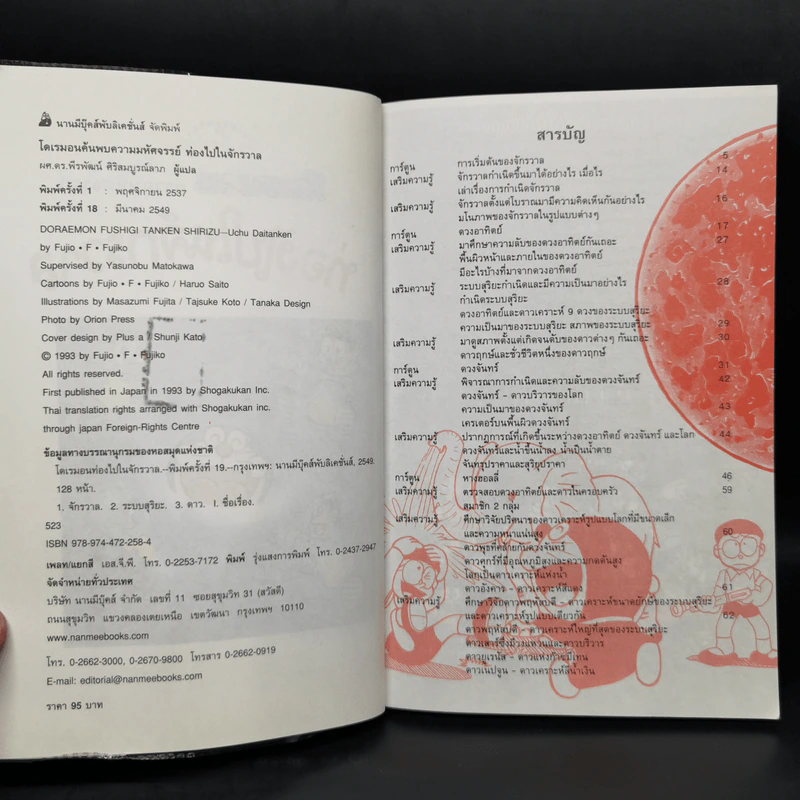 นานมีบุ๊คส์พับลิเคชั่นส์ จัดพิมพ์
โดเรมอนค้นพบความมหัศจรรย์ ท่องไปในจักรวาล
ผศ.ดร.พีรพัฒน์ ศิริสมบูรณ์ลาภ ผู้แปล
พิมพ์ครั้งที่ 1 : พฤศจิกายน 2537
พิมพ์ครั้งที่ 18 : มีนาคม 2549
DORAEMON FUSHIGI TANKEN SHIRIZU—Uchu Daitanken
by Fujio • F • Fujiko
Supervised by Yasunobu Matokawa
Cartoons by Fujio • F • Fujiko / Haruo Saito
Illustrations by Masazumi Fujita / Tajsuke Koto / Tanaka Design
Photo by Orion Press
Cover design by Plus a Shunji Kato
© 1993 by Fujio • F • Fujiko
All rights reserved.
First published in Japan in 1993 by Shogakukan Inc.
Thai translation rights arranged with Shogakukan inc.
through japan Foreign-Rights Centre
ข้อมูลทางบรรณานุกรมของหอสมุดแห่งชาติ
โดเรมอนท่องไปในจักรวาล.--พิมพ์ครั้งที่ 19.--กรุงเทพฯ: นานมีบุ๊คส์พับลิเคชั่นส์, 2549.
128 หน้า.
1. จักรวาล. 2. ระบบสุริยะ. 3. ดาว. I. ชื่อเรื่อง.
523
ISBN 978-974-472-258-4
เพลท/แยกสี เอส.จี.พี. โทร. 0-2253-7172 พิมพ์ รุ่งแสงการพิมพ์ โทร. 0-2437-2947
จัดจำหน่ายทั่วประเทศ
บริษัท นานมีบุ๊คส์ จำกัด เลขที่ 11 ซอยสุขุมวิท 31 (สวัสดี)
ถนนสุขุมวิท แขวงคลองเตยเหนือ เขตวัฒนา กรุงเทพฯ 10110
www.nanmeebooks.com
โทร. 0-2662-3000, 0-2670-9800 โทรสาร 0-2662-0919
E-mail: editorial@nanmeebooks.com
ราคา 95 บาท
สารบัญ
การ์ตูน การเริ่มต้นของจักรวาล 5
เสริมความรู้ จักรวาลกำเนิดขึ้นมาได้อย่างไร เมื่อไร 14
เล่าเรื่องการกำเนิดจักรวาล
เสริมความรู้ จักรวาลตั้งแต่โบราณมามีความคิดเห็นกันอย่างไร 16
มโนภาพของจักรวาลในรูปแบบต่างๆ
การ์ตูน ดวงอาทิตย์ 17
เสริมความรู้ มาศึกษาความลับของดวงอาทิตย์กันเถอะ 27
พื้นผิวหน้าและภายในของดวงอาทิตย์
มีอะไรบ้างที่มาจากดวงอาทิตย์
เสริมความรู้ ระบบสุริยะกำเนิดและมีความเป็นมาอย่างไร 28
กำเนิดระบบสุริยะ
ดวงอาทิตย์และดาวเคราะห์ 9 ดวงของระบบสุริยะ
ความเป็นมาของระบบสุริยะ สภาพของระบบสุริยะ 29
เสริมความรู้ มาดูสภาพตั้งแต่เกิดจนดับของดาวต่างๆ กันเถอะ 30
ดาวฤกษ์และชั่วชีวิตหนึ่งของดาวฤกษ์
การ์ตูน ดวงจันทร์ 31
เสริมความรู้ พิจารณาการกำเนิดและความลับของดวงจันทร์ 42
ดวงจันทร์ - ดาวบริวารของโลก
ความเป็นมาของดวงจันทร์ 43
เครเตอร์บนพื้นผิวดวงจันทร์
เสริมความรู้ ปรากฏการณ์ที่เกิดขึ้นระหว่างดวงอาทิตย์ ดวงจันทร์ และโลก 44
ดวงจันทร์และน้ำขึ้นน้ำลง น้ำเป็นน้ำตาย
จันทรุปราคาและสุริยุปราคา
การ์ตูน หางฮอลลี่ 46
เสริมความรู้ ตรวจสอบดวงอาทิตย์และดาวในครอบครัว 59
สมาชิก 2 กลุ่ม
เสริมความรู้ ศึกษาวิจัยปริศนาของดาวเคราะห์รูปแบบโลกที่มีขนาดเล็ก 60
และความหนาแน่นสูง
ดาวพุธที่คล้ายกับดวงจันทร์
ดาวศุกร์ที่มีอุณหภูมิสูงและความกดดันสูง
โลกเป็นดาวเคราะห์แห่งน้ำ
ดาวอังคาร - ดาวเคราะห์สีแดง 61
เสริมความรู้ ศึกษาวิจัยดาวพฤหัสบดี - ดาวเคราะห์ขนาดยักษ์ของระบบสุริยะ 62
และดาวเคราะห์รูปแบบเดียวกัน
ดาวพฤหัสบดี - ดาวเคราะห์ใหญ่ที่สุดของระบบสุริยะ
ดาวเสาร์ซึ่งมีวงแหวนและดาวบริวาร
ดาวยูเรนัส - ดาวแห่งก๊าซมีเทน
ดาวเนปจูน - ดาวเคราะห์สีน้ำเงิน